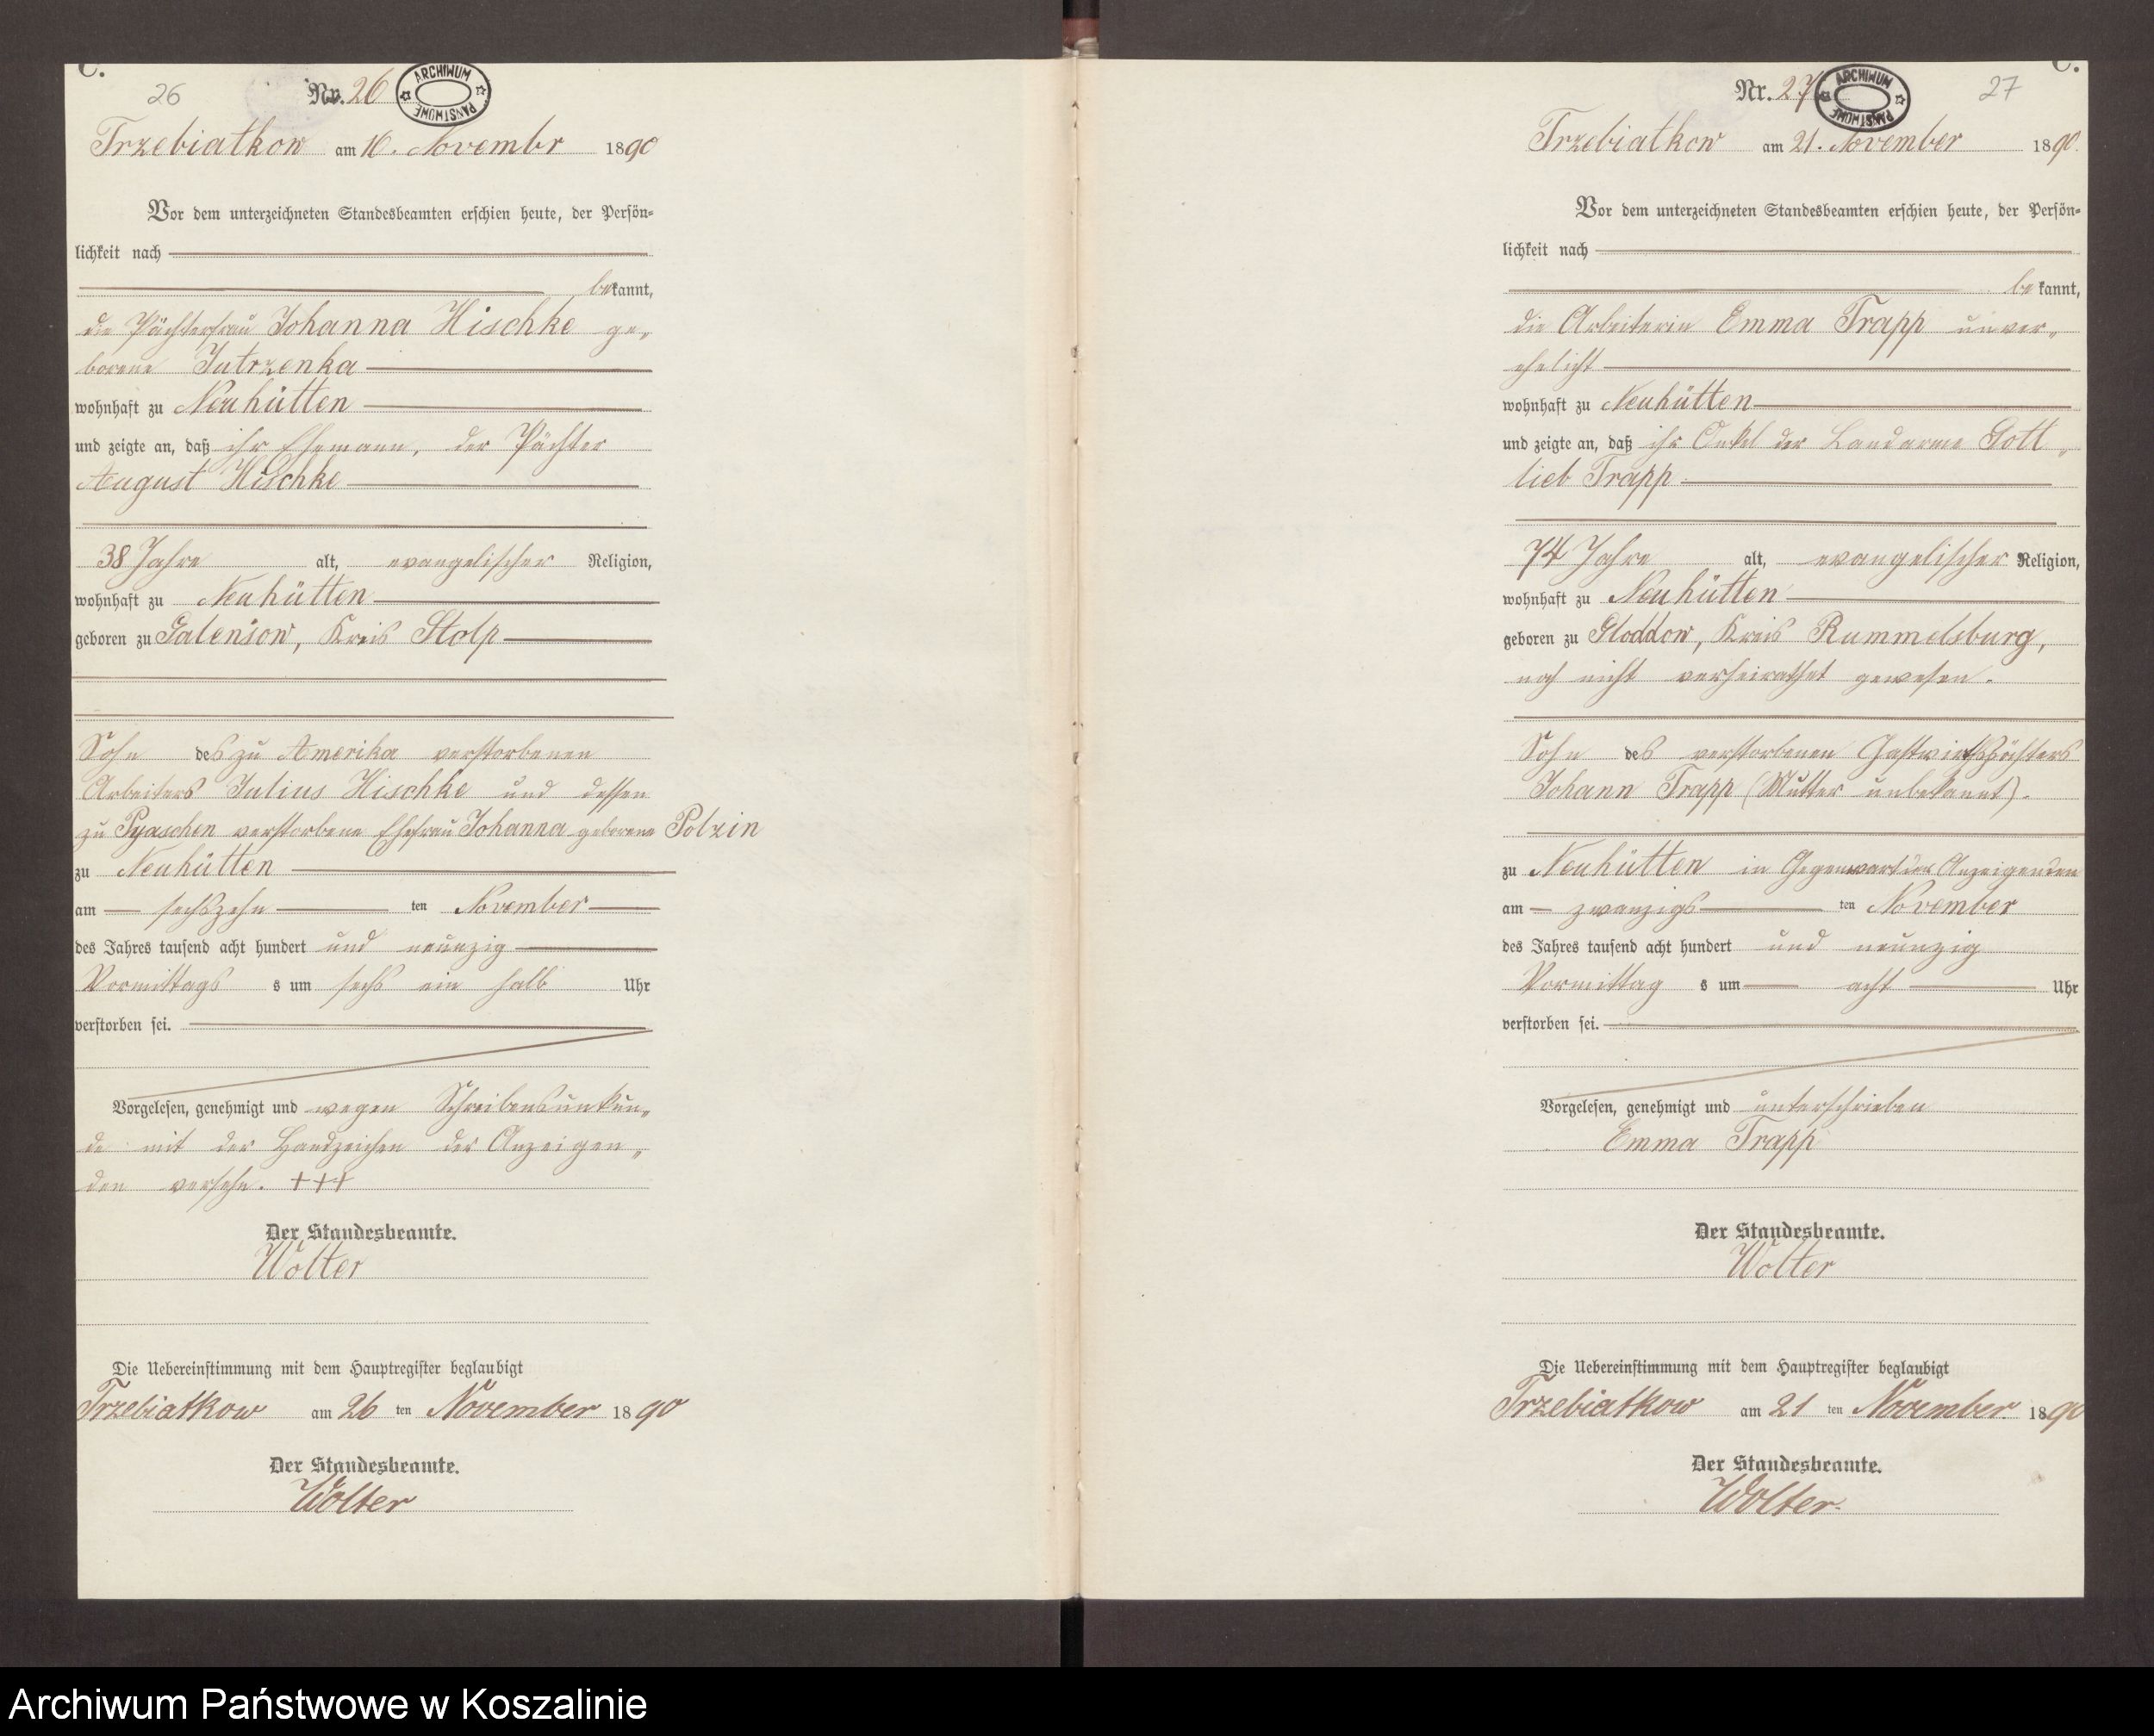 C.
26
Nr. 26
ARCHIWUM PAŃSTWOWE
Trzebiatkow am 16. Novembr 1890
Vor dem unterzeichneten Standesbeamten erschien heute, der Persön=
lichkeit nach
bekannt,
die Pächterfrau Johanna Hischke ge„
borene Jutrzenka
wohnhaft zu Neuhütten
und zeigte an, daß ihr Ehemann, der Pächter
August Hischke
38 Jahre alt, evangelischer Religion,
wohnhaft zu Neuhütten
geboren zu Galensow, Kreis Stolp
Sohn des zu Amerika verstorbenen
Arbeiters Julius Hischke und dessen
zu Pyaschen verstorbene Ehefrau Johanna geborene Polzin
zu Neuhütten
am sechszehn ten November
des Jahres tausend acht hundert und neunzig
Vormittags s um sechs ein halb Uhr
verstorben sei.
Vorgelesen, genehmigt und wegen Schreibensunkun„
de mit der Handzeichen der Anzeigen„
den versehn. +++
Der Standesbeamte.
Wolter
Die Uebereinstimmung mit dem Hauptregister beglaubigt
Trzebiatkow am 26 ten November 1890
Der Standesbeamte.
Wolter
C.
Nr. 27
ARCHIWUM PAŃSTWOWE
27
Trzebiatkow am 21. November 1890.
Vor dem unterzeichneten Standesbeamten erschien heute, der Persön=
lichkeit nach
bekannt,
die Arbeiterin Emma Trapp unver„
ehelicht
wohnhaft zu Neuhütten
und zeigte an, daß ihr Onkel der Landarme Gott„
lieb Trapp
74 Jahre alt, evangelischer Religion,
wohnhaft zu Neuhütten
geboren zu Gloddow, Kreis Rummelsburg,
noch nicht verheirathet gewesen.
Sohn des verstorbenen Gastwirthspächters
Johann Trapp (Mutter unbekannt).
zu Neuhütten in Gegenwart der Anzeigenden
am zwanzigs ten November
des Jahres tausend acht hundert und neunzig
Vormittag s um acht Uhr
verstorben sei.
Vorgelesen, genehmigt und unterschrieben
Emma Trapp
Der Standesbeamte.
Wolter
Die Uebereinstimmung mit dem Hauptregister beglaubigt
Trzebiatkow am 21 ten November 1890
Der Standesbeamte.
Wolter.
Archiwum Państwowe w Koszalinie